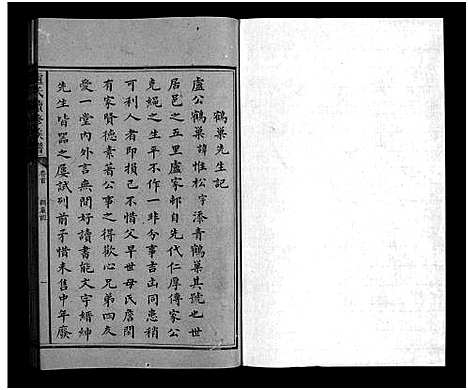 鶴巢先生記
盧公鶴巢諱惟松字添青鶴巢其號也世
居邑之五里盧家邨自先代仁厚傳家公
克繩之生平不作一非分事吉凶同患稍
可利人者即損已不惜父早世母氏詹閫
有家賢德素著事之得歡心兄弟四友
愛一堂內外言無間好讀書能文字縉紳
先生皆器之屢試列前矛惜未售中年廢
卷首
一